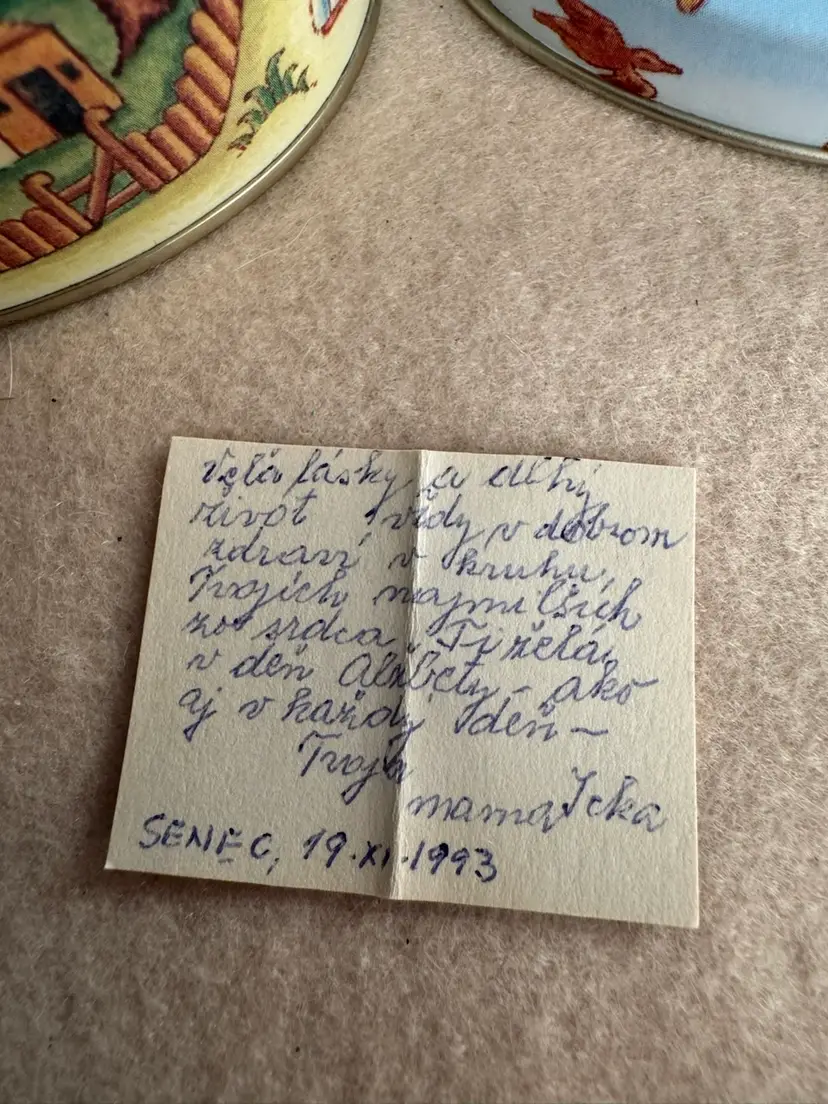 Veľa lásky a dlhý
život vždy v dobrom
zdraví v kruhu
Tvojich najmilších
zo srdca Ti želá
v deň Alžbety – ako
aj v každý deň –
Tvoja
mama Icka
SENEC, 19.XI.1993